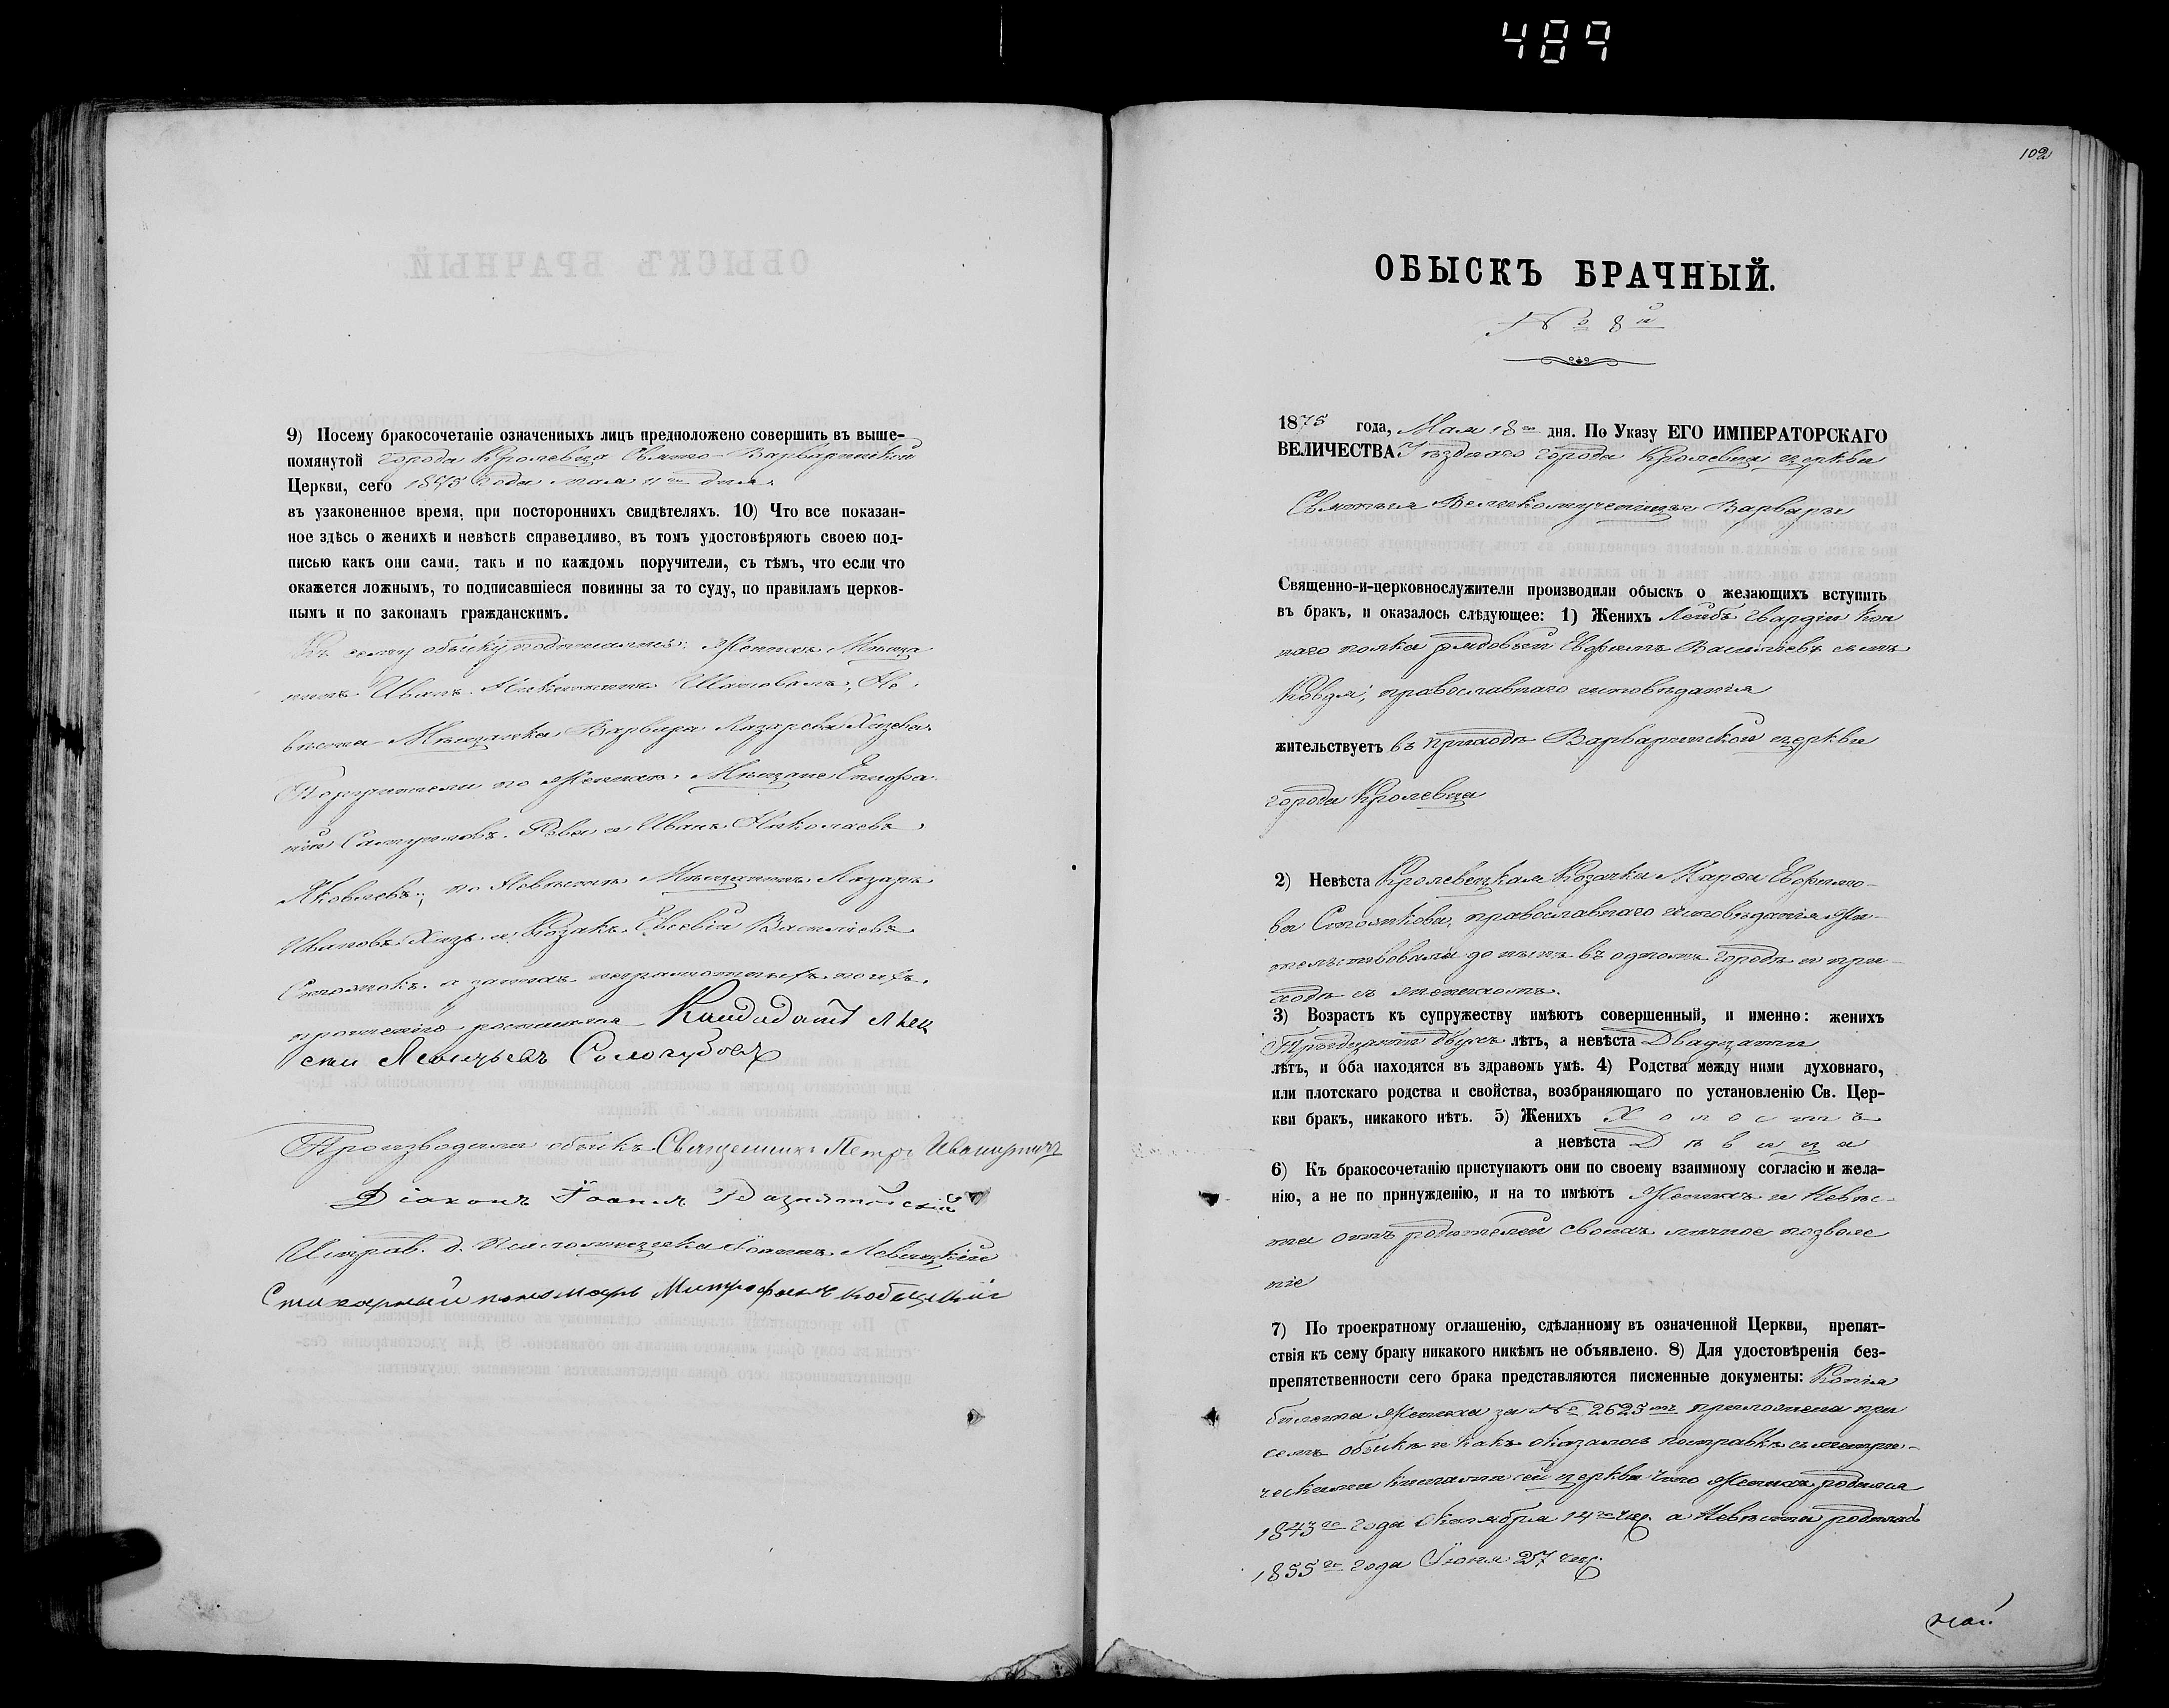 489
9) Посему бракосочетаніе означенныхъ лицъ предположено совершить въ выше-
помянутой города Кролевца Свято-Варваринской
Церкви, сего 1875 года мая 11го дня.
въ узаконенное время, при постороннихъ свидѣтеляхъ. 10) Что все показан-
ное здѣсь о женихѣ и невѣстѣ справедливо, въ томъ удостовѣряютъ своею под-
писью какъ они сами, такъ и по каждомъ поручители, съ тѣмъ, что если что
окажется ложнымъ, то подписавшіеся повинны за то суду, по правиламъ церков-
нымъ и по законамъ гражданскимъ.
Къ сему обыску подписались: Женихъ Мѣща
нинъ Иванъ Никитинъ Шаповалъ, Не
вѣста Мѣщанка Варвара Лазарева
Поручители по Женихѣ: Мѣщане
и Иванъ Николаевъ
Яковлевъ; по Невѣстѣ Мѣщанинъ Лазарь
Ивановъ и Козакъ Евсевій Василіевъ
а за нихъ неграмотныхъ по ихъ
прошенію росписался Кандидатъ Алек
сѣй Сологубовъ
Производили обыскъ: Священникъ Петръ
Діаконъ Іоаннъ
Исправ. д. Псаломщика Іоаннъ Левицкій
Стихарный пономарь Митрофанъ
102
ОБЫСКЪ БРАЧНЫЙ.
№ 8й
1875 года, Мая 18го дня. По Указу ЕГО ИМПЕРАТОРСКАГО
ВЕЛИЧЕСТВА Уѣзднаго города Кролевца церкви
Святыя Великомученицы Варвары
Священно-и-церковнослужители производили обыскъ о желающихъ вступить
въ бракъ, и оказалось слѣдующее: 1) Женихъ Лейбъ Гвардіи Кон
наго полка рядовый Ефремъ Василіевъ сынъ
православнаго исповѣданія
жительствуетъ въ приходѣ Варваринской церкви
города Кролевца
2) Невѣста Кролевецкая Козачка Марфа
ва православнаго исповѣданія жи-
тельствовала до нынѣ въ одномъ городѣ и при-
ходѣ съ женихомъ.
3) Возрастъ къ супружеству имѣютъ совершенный, и именно: женихъ
Тридцати двухъ лѣтъ, а невѣста Двадцати
лѣтъ, и оба находятся въ здравомъ умѣ. 4) Родства между ними духовнаго,
или плотскаго родства и свойства, возбраняющаго по установленію Св. Цер-
кви бракъ, никакого нѣтъ. 5) Женихъ Холостъ
а невѣста Дѣвица
6) Къ бракосочетанію приступаютъ они по своему взаимному согласію и жела-
нію, а не по принужденію, и на то имѣютъ Женихъ и Невѣс-
та отъ родителей своихъ личное позволе
ніе
7) По троекратному оглашенію, сдѣланному въ означенной Церкви, препят-
ствія къ сему браку никакого никѣмъ не объявлено. 8) Для удостовѣренія без-
препятственности сего брака представляются писменные документы: Копія
билета Жениха за № 2625 приложена при
семъ обыскѣ и какъ оказалось по справкѣ съ метри-
ческими книгами сей церкви что Женихъ родился
1843го года Октября 14го чис. а Невѣста родилась
1855го года Іюня 27 чис.